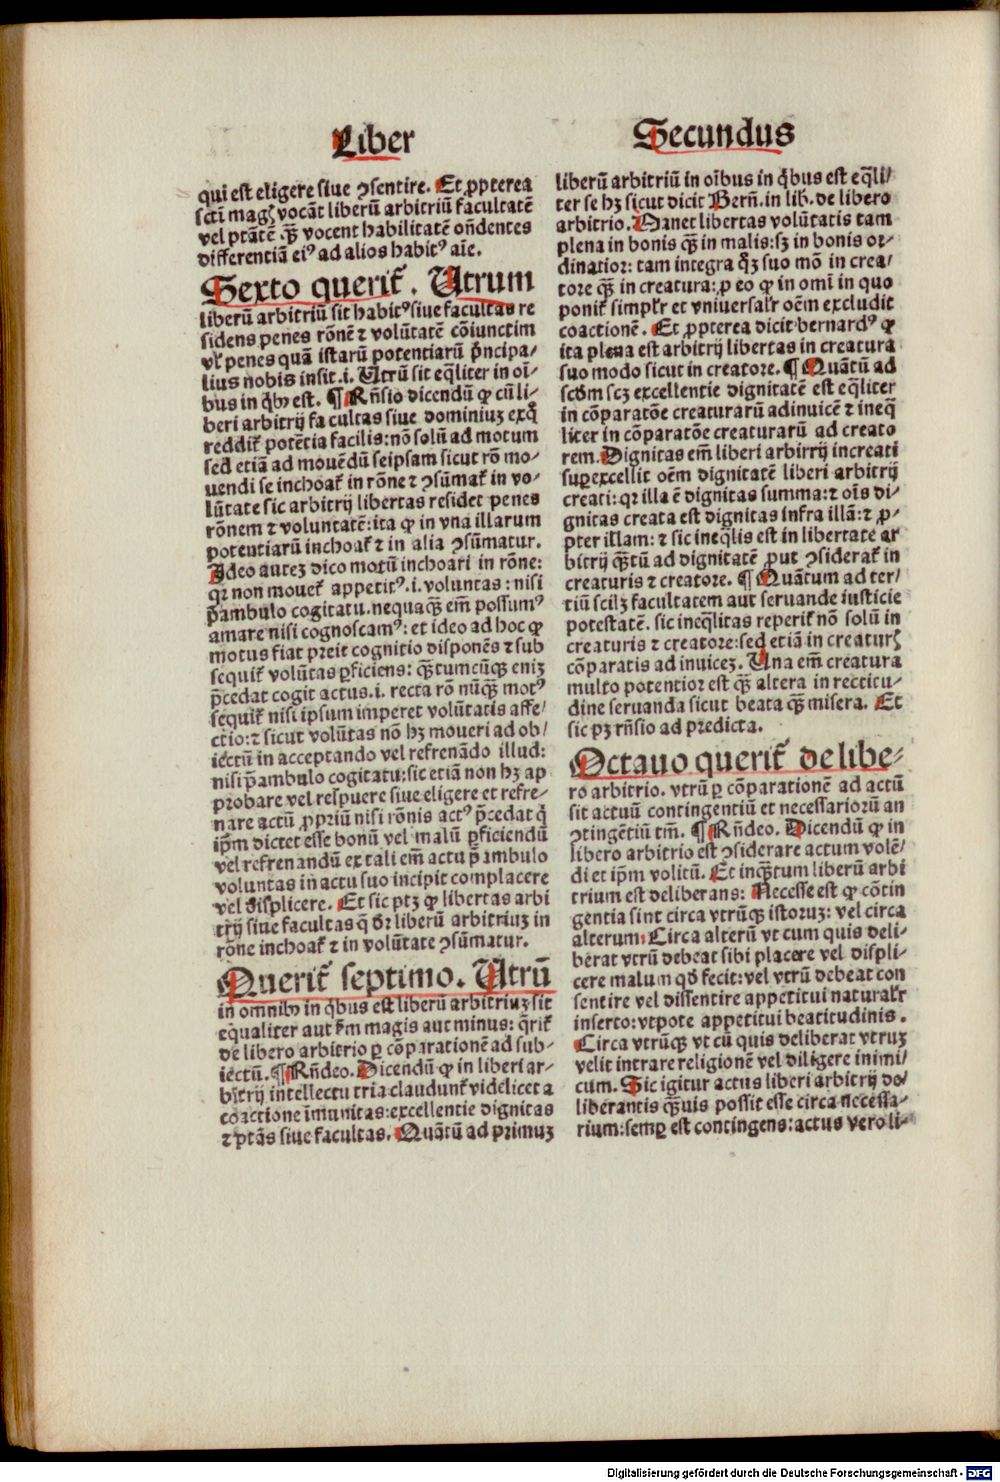 Liber
qui est eligere siue ꝯsentire. Et ꝓpterea
scti magꝭ vocāt liberū arbitriū facultatē
vel ptātē qꝫ̄ vocent habilitatē oñdentes
differentiā eiꝰ ad alios habitꝰ aīe.
Sexto querit᷑. Utrum
liberū arbitriū sit habitꝰ siue facultas re
sidens penes rōnē ⁊ volūtatē cōiunctim
vl᷑ penes quā istarū potentiarū p̄ncipa/
lius nobis insit .i. Utrū sit eq̄liter in oī/
bus in qͥbꝫ est. ¶ Rñsio dicendū ꝙ cū li/
beri arbitrij facultas siue dominiuꝫ exqͣ
reddit᷑ potētia facilis: nō solū ad motum
sed etiā ad mouēdū seipsam sicut rō mo/
uendi se inchoat᷑ in rōne ⁊ ꝯsūmat᷑ in vo/
lūtate sic arbitrij libertas residet penes
rōnem ⁊ voluntatē: ita ꝙ in vna illarum
potentiarū inchoat᷑ ⁊ in alia ꝯsūmatur.
Ideo auteꝫ dico motū inchoari in rōne:
qꝛ non mouet᷑ appetitꝰ .i. voluntas: nisi
p̄ambulo cogitatu. nequaqꝫ̄ em̄ possumꝰ
amare nisi cognoscamꝰ: et ideo ad hoc ꝙ
motus fiat preit cognitio disponēs ⁊ sub
sequit᷑ volūtas ꝑficiens: qꝫ̄tumcūqꝫ eniꝫ
p̄cedat cogit actus .i. recta rō nūqꝫ̄ motꝰ
sequit᷑ nisi ipsum imperet volūtatis affe/
ctio: ⁊ sicut volūtas nō hꝫ moueri ad ob/
iectū in acceptando vel refrenādo illud:
nisi p̄ambulo cogitatu: sic etiā non hꝫ ap
probare vel respuere siue eligere et refre/
nare actū ꝓpriū nisi rōnis actꝰ p̄cedat qͥ
ip̄m dictet esse bonū vel malū ꝑficiendū
vel refrenandū ex tali em̄ actu p̄ambulo
voluntas in actu suo incipit complacere
vel displicere. Et sic ptꝫ ꝙ libertas arbi
trij siue facultas q̄ dꝛ liberū arbitriuꝫ in
rōne inchoat᷑ ⁊ in volūtate ꝯsūmatur.
Querit᷑ septimo. Utrū
in omnibꝫ in qͥbus est liberū arbitriuꝫ sit
equaliter aut ẜm magis aut minus: q̄rit᷑
de libero arbitrio ꝑ cōparationē ad sub-
iectū. ¶ Rñdeo. Dicendū ꝙ in liberi ar-
bitrij intellectu tria claudunt᷑ videlicet a
coactione īmunitas: excellentie dignitas
⁊ ptās siue facultas. Quātū ad primuꝫ
Secundus
liberū arbitriū in oībus in qͥbus est eq̄li/
ter se hꝫ sicut dicit Berñ. in lib. de libero
arbitrio. Manet libertas volūtatis tam
plena in bonis qꝫ̄ in malis: sꝫ in bonis or/
dinatior: tam integra qͥdꝫ suo mō in crea/
tore qꝫ̄ in creatura: ꝓ eo ꝙ in omī in quo
ponit᷑ simplr᷑ et vniuersalr᷑ oēm excludit
coactionē. Et ꝓpterea dicit bernardꝰ ꝙ
ita plena est arbitrij libertas in creatura
suo modo sicut in creatore. ¶ Quātū ad
scd̄m scꝫ excellentie dignitatē est eq̄liter
in cōparatōe creaturarū adinuicē ⁊ ineq̄
liter in cōparatōe creaturarū ad creato
rem. Dignitas em̄ liberi arbirrij increati
suꝑexcellit oēm dignitatē liberi arbitrij
creati: qꝛ illa ē dignitas summa: ⁊ oīs di/
gnitas creata est dignitas infra illā: ⁊ ꝓ/
pter illam: ⁊ sic ineq̄lis est in libertate ar
bitrij qꝫ̄tū ad dignitatē ꝓut ꝯsiderat᷑ in
creaturis ⁊ creatore. ¶ Quātum ad ter/
tiū scilꝫ facultatem aut seruande iusticie
potestatē. sic ineq̄litas reperit᷑ nō solū in
creaturis ⁊ creatore: sed etiā in creaturꝭ
cōparatis ad inuiceꝫ. Una em̄ creatura
multo potentior est qꝫ̄ altera in rectitu/
dine seruanda sicut beata qꝫ̄ misera. Et
sic pꝫ rñsio ad predicta.
Octauo querit᷑ de libe-
ro arbitrio. vtrū ꝑ cōparationē ad actū
sit actuū contingentiū et necessariorū an
ꝯtingētiū tm̄. ¶ Rñdeo. Dicendū ꝙ in
libero arbitrio est ꝯsiderare actum volē/
di et ip̄m volitū. Et inqꝫ̄tum liberū arbi
trium est deliberans: Necesse est ꝙ cōtin
gentia sint circa vtrūqꝫ istoruꝫ: vel circa
alterum: Circa alterū vt cum quis deli-
berat vtrū debeat sibi placere vel displi-
cere malum qd̄ fecit: vel vtrū debeat con
sentire vel dissentire appetitui naturalr᷑
inserto: vtpote appetitui beatitudinis.
Circa vtrūqꝫ vt cū quis deliberat vtruꝫ
velit intrare religionē vel diligere inimi/
cum. Sic igitur actus liberi arbitrij de/
liberantis qꝫ̄uis possit esse circa necessa-
rium: semꝑ est contingens: actus vero li-
Digitalisierung gefördert durch die Deutsche Forschungsgemeinschaft - DFG